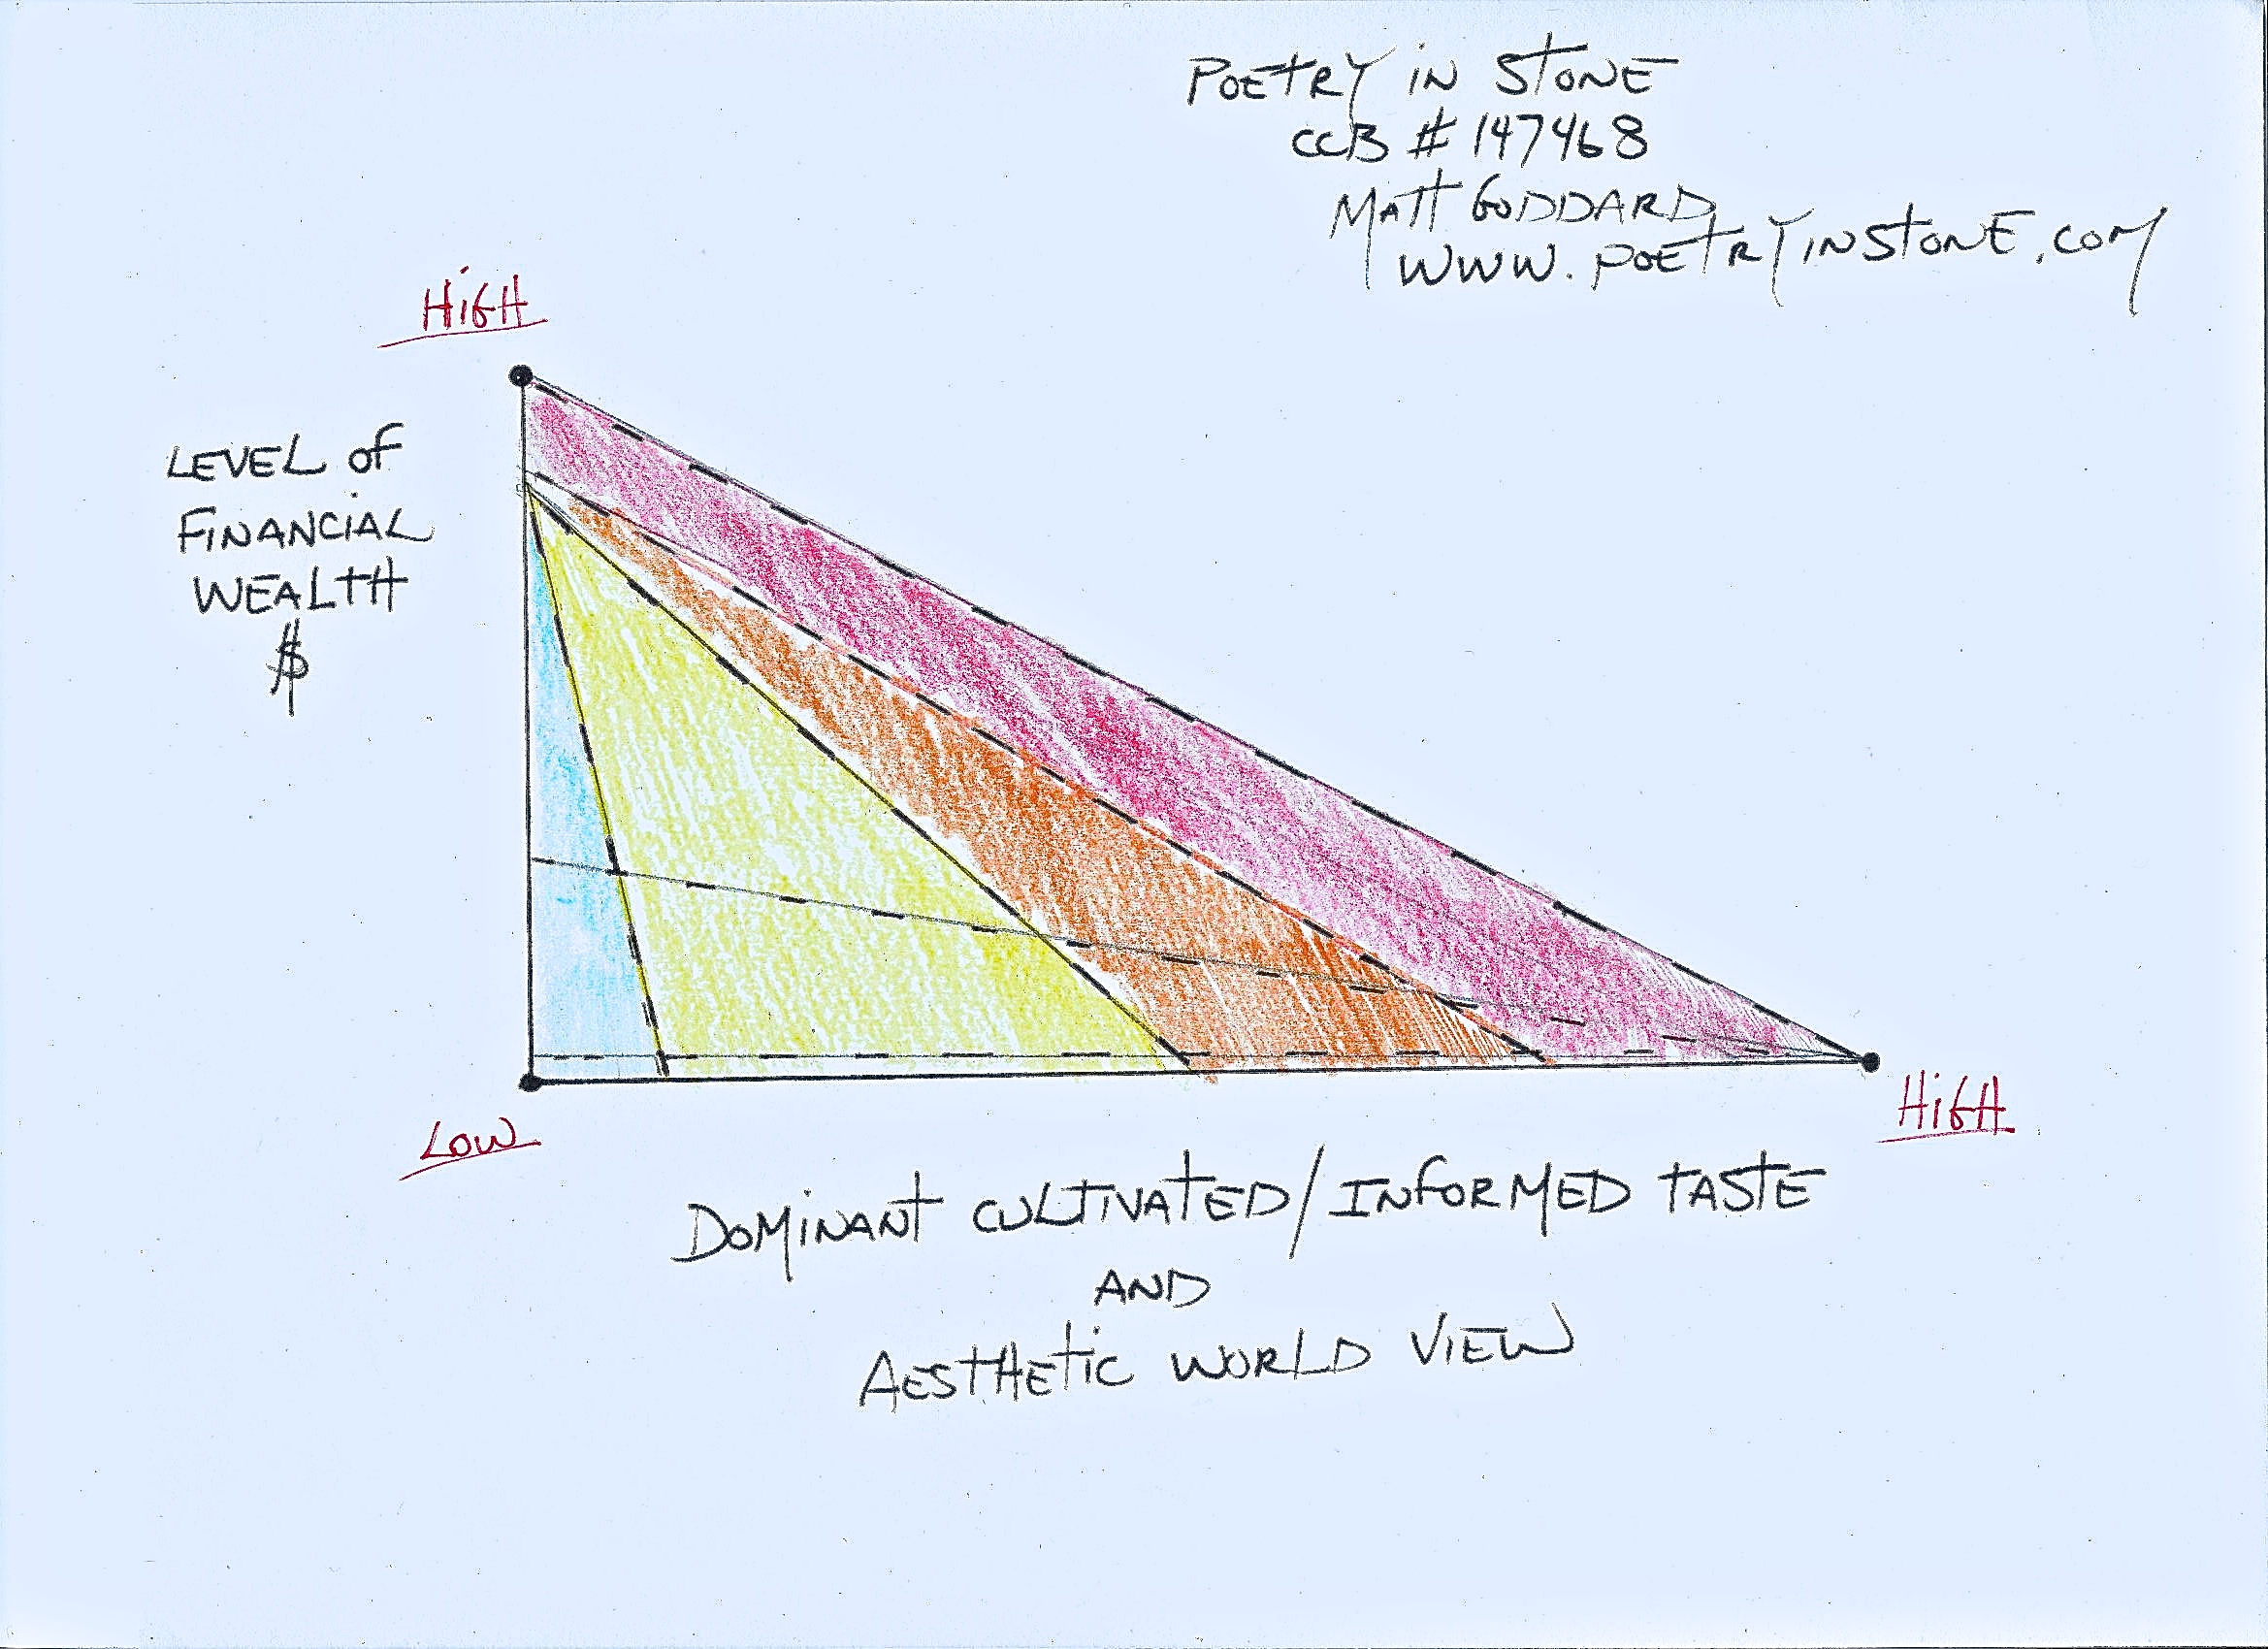 POETRY IN STONE
CCB # 147468
MATT GODDARD
WWW.POETRYINSTONE.COM
HIGH
LEVEL OF
FINANCIAL
WEALTH
$
LOW
HIGH
DOMINANT CULTIVATED/INFORMED TASTE
AND
AESTHETIC WORLD VIEW